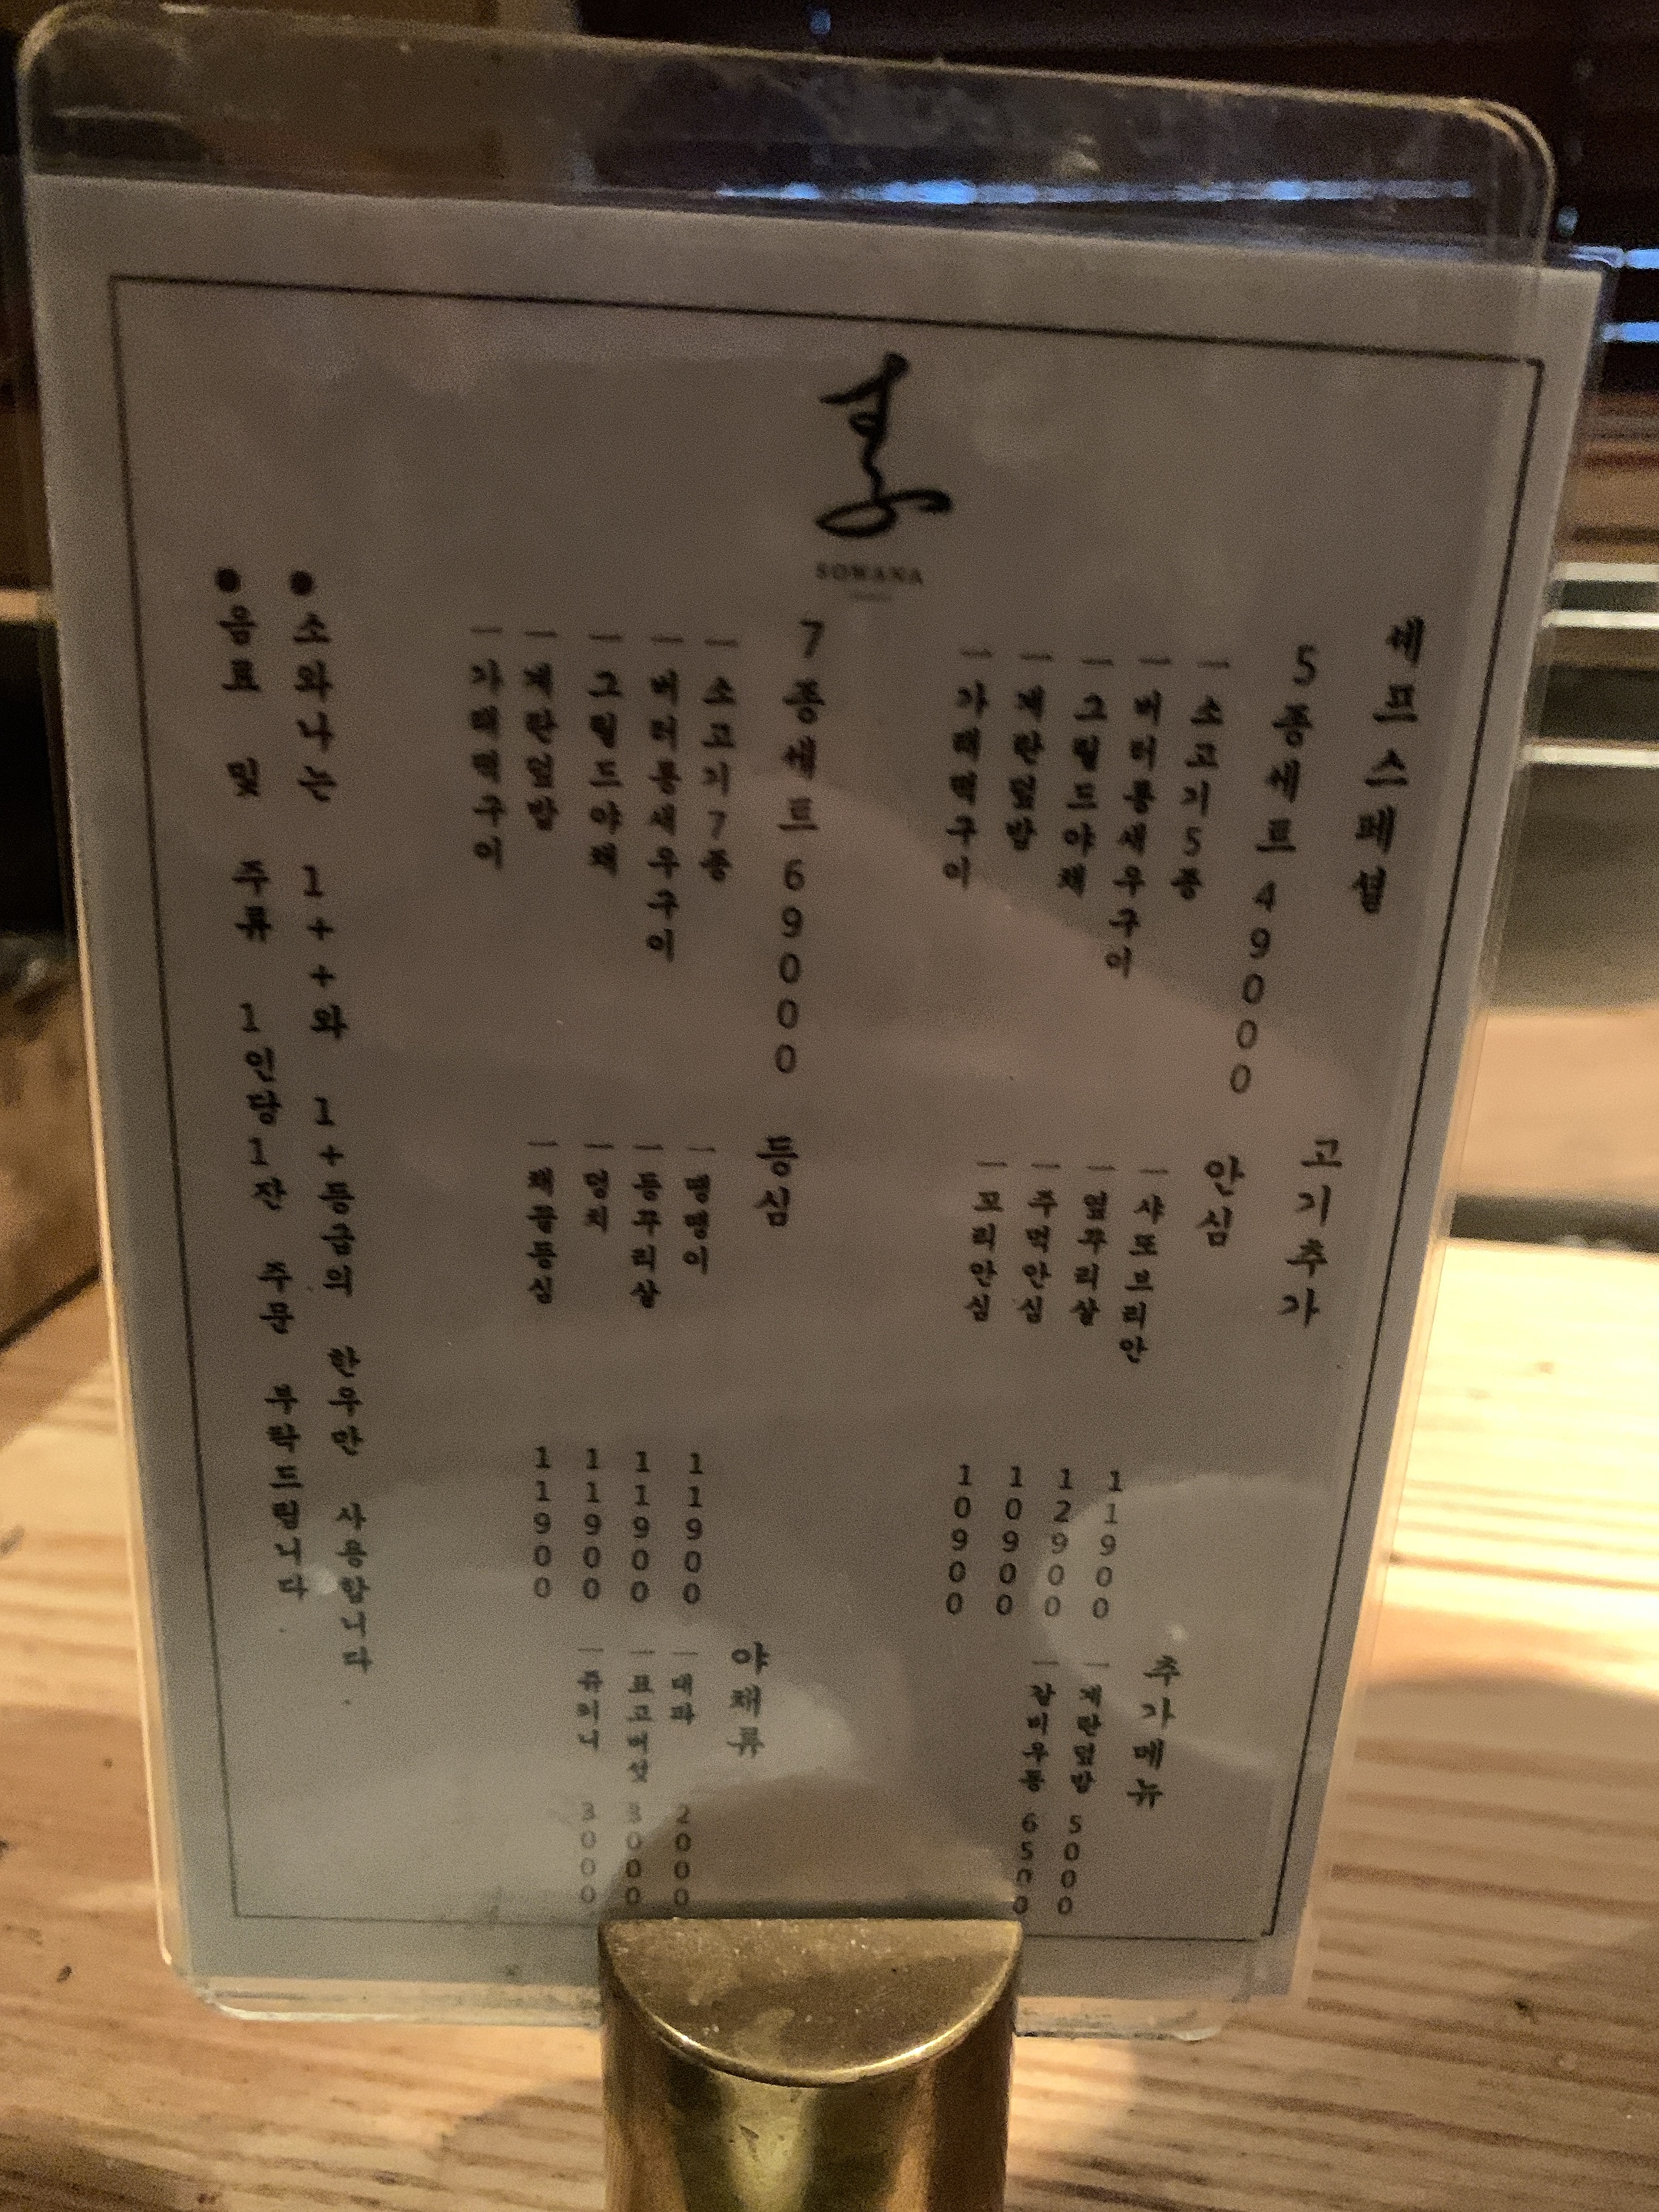 SOWANA
쉐프스페셜
5종세트 49000
— 소고기5종
— 버터롱새우구이
— 그릴드야채
— 계란덮밥
— 가래떡구이
7종세트 69000
— 소고기7종
— 버터롱새우구이
— 그릴드야채
— 계란덮밥
— 가래떡구이
고기추가
안심
— 샤또브리안 11900
— 알꾸리살 12900
— 주먹안심 10900
— 꼬리안심 10900
등심
— 명명이 11900
— 등꾸리살 11900
— 멍치 11900
— 채끝등심 11900
추가메뉴
— 계란덮밥 5000
— 갈비우동 6500
야채류
— 대파 2000
— 표고버섯 3000
— 쥬키니 3000
● 소와나는 1++와 1+등급의 한우만 사용합니다.
● 음료 및 주류 1인당1잔 주문 부탁드립니다.